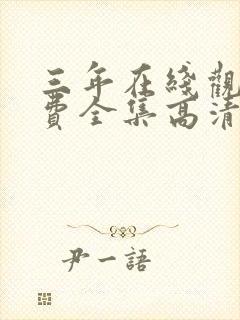 三年在綫觀
費全集高清
尹一語